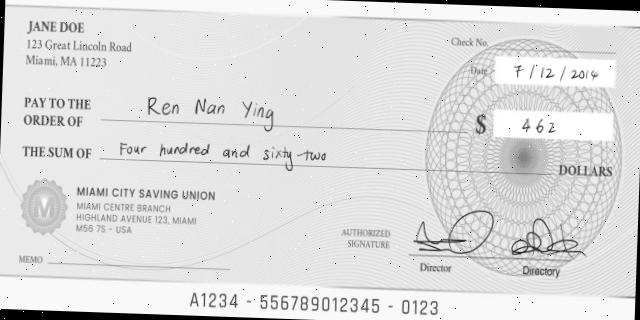 JANE DOE
123 Great Lincoln Road
Miami, MA 11223
Check No.
Date 7/12/2014
PAY TO THE
ORDER OF Ren Nan Ying
$ 462
THE SUM OF Four hundred and sixty-two DOLLARS
M
MIAMI CITY SAVING UNION
MIAMI CENTRE BRANCH
HIGHLAND AVENUE 123, MIAMI
M56 7S - USA
AUTHORIZED
SIGNATURE
MEMO
Director
Directory
A1234 - 556789012345 - 0123